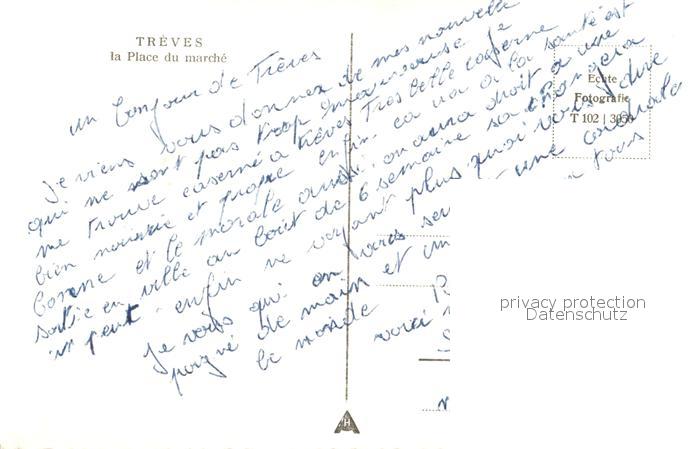 TRÈVES
la Place du marché
Echte
Fotografie
T 102 | 3053
un bonjour de Trèves
Je viens vous donner de mes nouvelle
qui ne sont pas trop mauvaise Je
me trouve caserné a trèves Tres belle caserne
bien nourrie et propre enfin ca va a la santé est
bonne et le morale aussi, on aura droit a une
sortie en ville au bout de 6 semaine sa changera
un peut - enfin ne voyant plus quoi vous dire
Je vous qui en vous une cordiale
pogné de main et un a tous
le monde
voici
privacy protection
Datenschutz
H